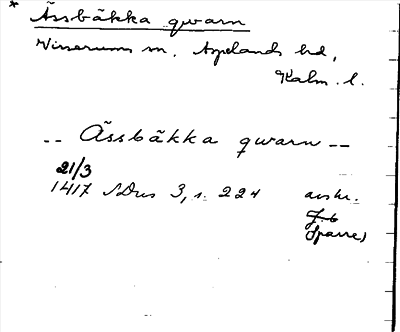 * Ässbäkka qwarn
Virserums sn. Aspelands hd,
Kalm. l.
-- Ässbäkka qwarn --
21/3
1417 SDns 3, s. 224 avskr.
Sparre)